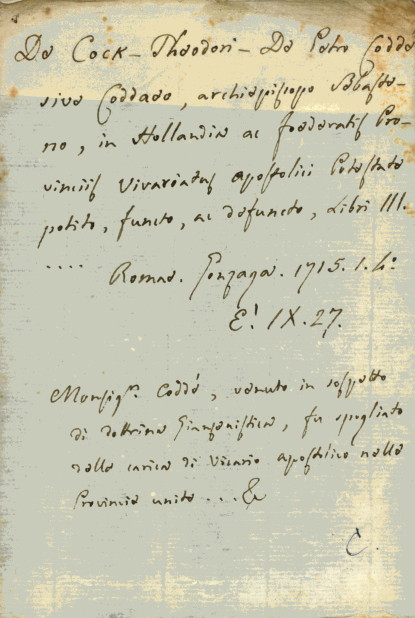 De Cock - Theodori - De Petro Codde
sive Coddaeo, archiepiscopo Sebaste-
no, in Hollandia ac foederatis Pro-
vinciis Vicariatus apostolici Potestate
potito, functo, ac defuncto, Libri III.
.... Romae. Gonzaga. 1715. 1. 4:º
E! IX. 27.
Monsigr. Coddé, venuto in sospetto
di dottrina Giansenistica, fu spogliato
della carica di Vicario apostolico nelle
Provincie unite ... &
C.